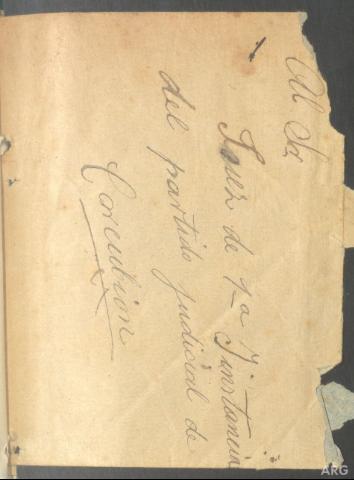 Al Sr.
Juez de 1ª Yinstancia
del partido judicial de
Corcubion
ARG